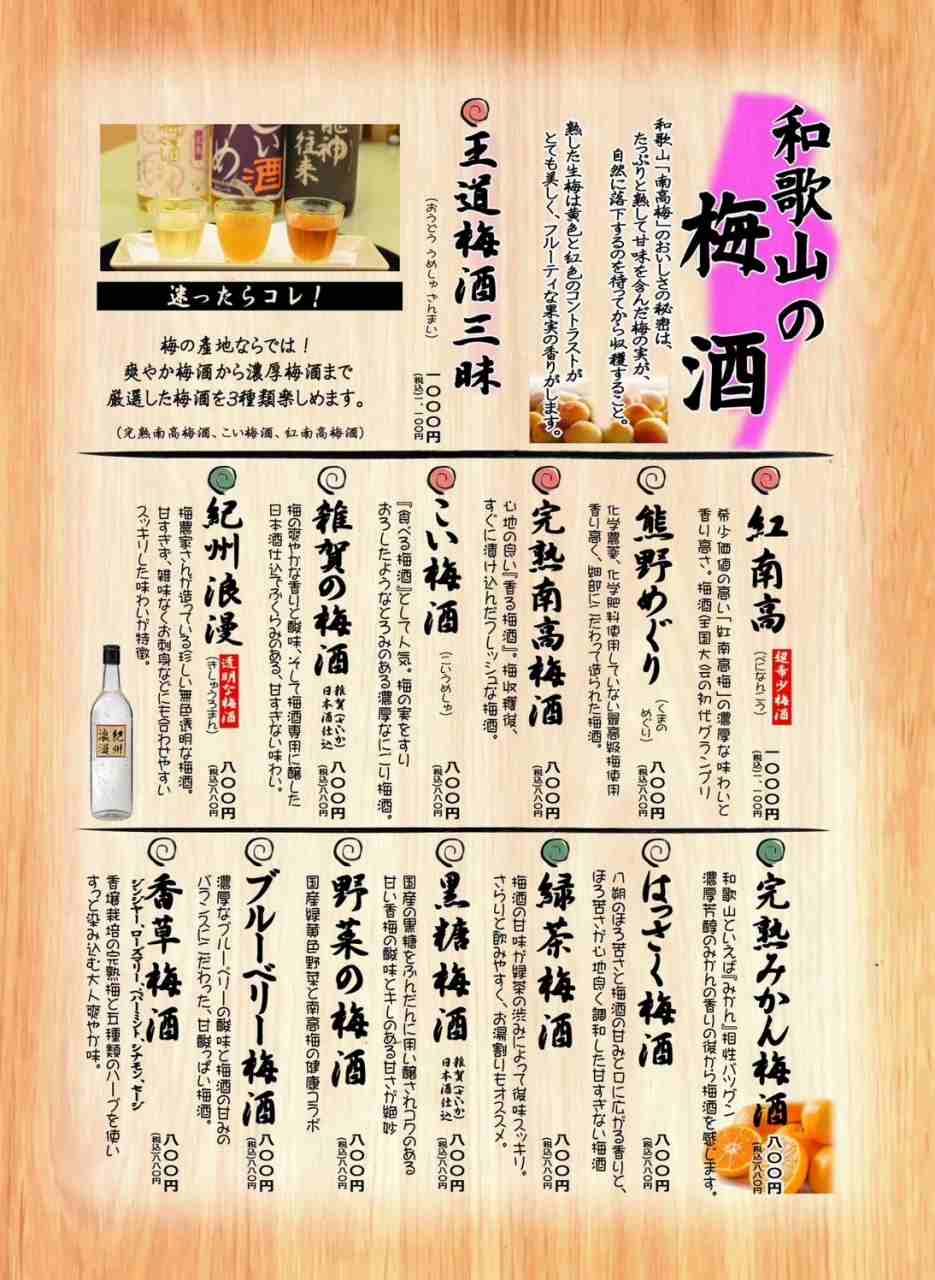 和歌山の
梅酒
和歌山「南高梅」のおいしさの秘密は、
たっぷりと熟して甘味を含んだ梅の実が、
自然に落下するのを待ってから収穫すること。
熟した生梅は黄色と紅色のコントラストが
とても美しく、フルーティな果実の香りがします。
王道梅酒三昧
(おうどう うめしゅ さんまい)
一〇〇〇円
(税込)一、一〇〇円
龍神
往来
迷ったらコレ!
梅の産地ならでは!
爽やか梅酒から濃厚梅酒まで
厳選した梅酒を3種類楽しめます。
(完熟南高梅酒、こい梅酒、紅南高梅酒)
紅南高
(べになんこう)
超希少梅酒
一〇〇〇円
(税込)一、一〇〇円
希少価値の高い「紅南高梅」の濃厚な味わいと
香り高さ。梅酒全国大会の初代グランプリ
熊野めぐり
(くまの
めぐり)
八〇〇円
(税込)八八〇円
化学農薬、化学肥料使用していない最高級梅使用
香り高く、細部にこだわって造られた梅酒。
完熟南高梅酒
八〇〇円
(税込)八八〇円
心地の良い『香る梅酒』。梅収穫後、
すぐに漬け込んだフレッシュな梅酒。
こい梅酒
(こいうめしゅ)
八〇〇円
(税込)八八〇円
『食べる梅酒』として人気。梅の実をすり
おろしたようなとろみのある濃厚なにごり梅酒。
雑賀の梅酒
雑賀(さいか)
日本酒仕込
八〇〇円
(税込)八八〇円
梅の爽やかな香りと酸味、そして梅酒専用に醸した
日本酒仕込でふくらみのある、甘すぎない味わい。
紀州浪漫
(きしゅうろまん)
透明な梅酒
八〇〇円
(税込)八八〇円
梅農家さんが造っている珍しい無色透明な梅酒。
甘すぎず、雑味なくお刺身などにも合わせやすい
スッキリした味わいが特徴。
紀州
浪漫
完熟みかん梅酒
八〇〇円
(税込)八八〇円
和歌山といえば『みかん』相性バツグン
濃厚芳醇のみかんの香りの後から梅酒を感じます。
はっさく梅酒
八〇〇円
(税込)八八〇円
八朔のほろ苦さと梅酒の甘みと口に広がる香りと、
ほろ苦さが心地良く調和した甘すぎない梅酒
緑茶梅酒
八〇〇円
(税込)八八〇円
梅酒の甘味が緑茶の渋みによって後味スッキリ。
さらりと飲みやすく、お湯割りもオススメ。
黒糖梅酒
雑賀(さいか)
日本酒仕込
八〇〇円
(税込)八八〇円
国産の黒糖をふんだんに用い醸されコクのある
甘い香梅の酸味とキレのある甘さが絶妙
野菜の梅酒
八〇〇円
(税込)八八〇円
国産緑黄色野菜と南高梅の健康コラボ
ブルーベリー梅酒
八〇〇円
(税込)八八〇円
濃厚なブルーベリーの酸味と梅酒の甘みの
バランスにこだわった、甘酸っぱい梅酒。
香草梅酒
八〇〇円
(税込)八八〇円
ジンジャー、ローズマリー、ペパーミント、シナモン、セージ
香壌栽培の完熟梅と五種類のハーブを使い
すっと染み込む大人爽やか味。